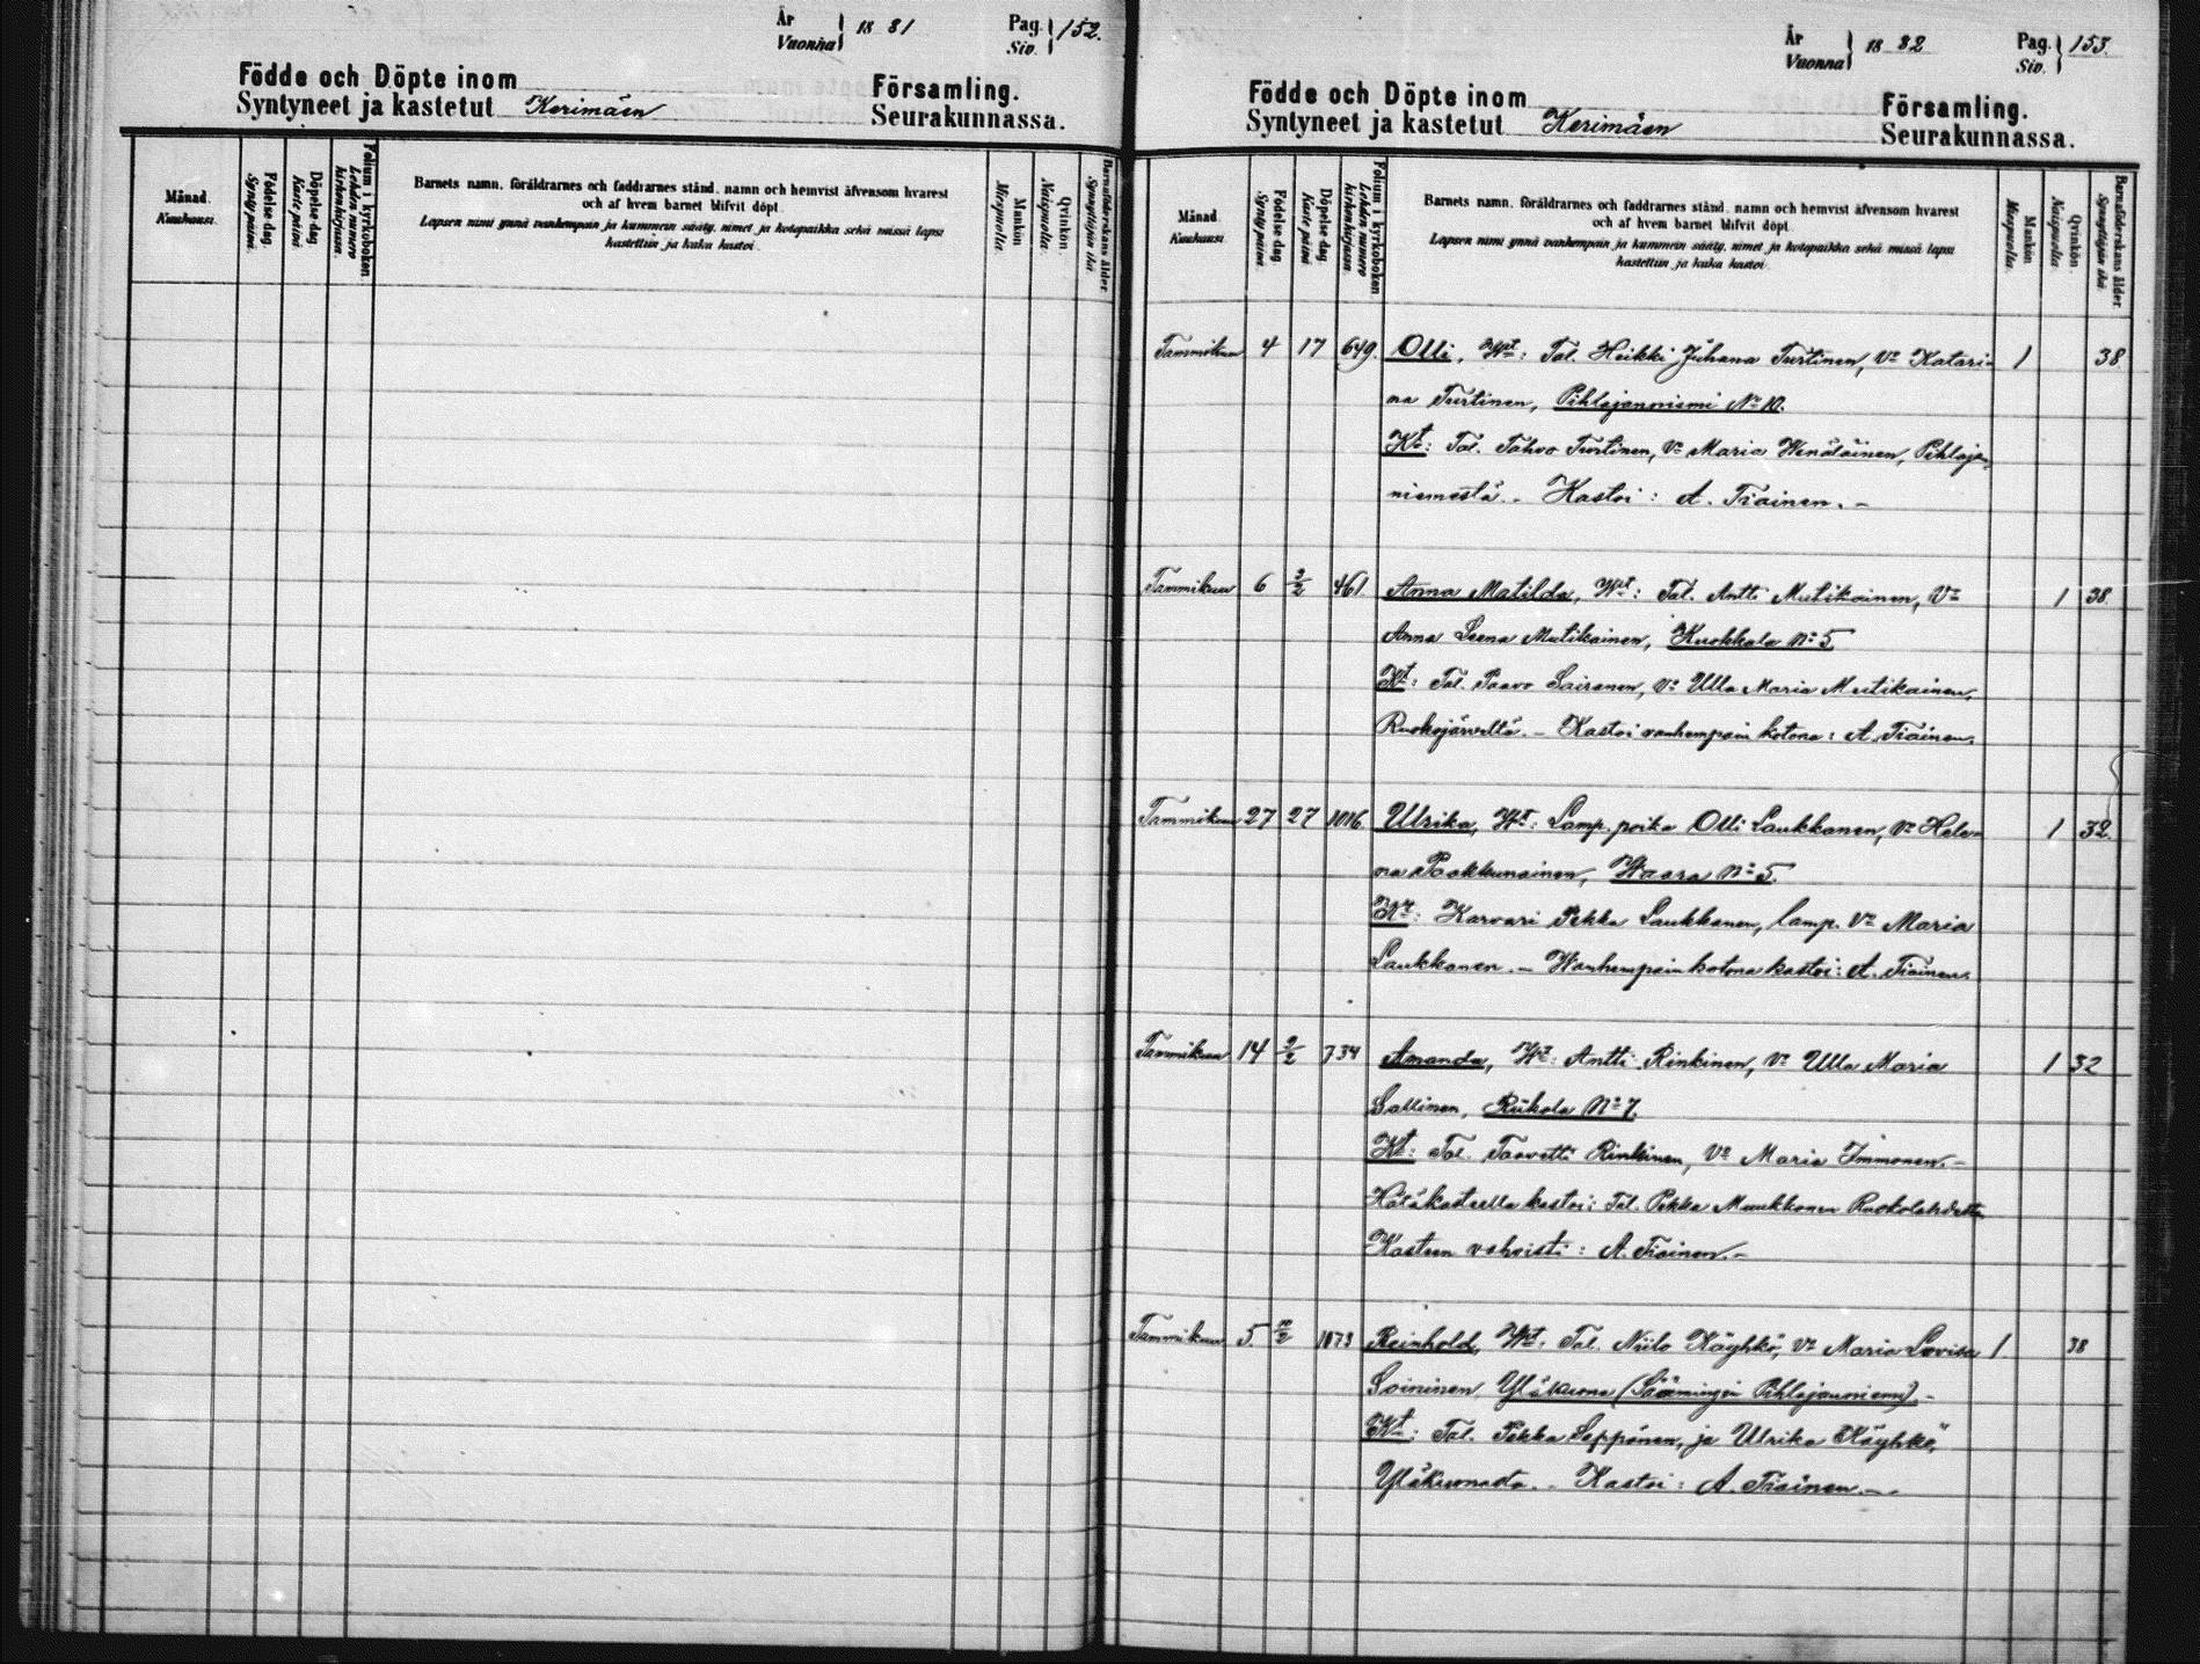 År
Vuonna
1881
Pag.
Siv.
152.
Födde och Döpte inom
Syntyneet ja kastetut Kerimäen
Församling.
Seurakunnassa.
Månad.
Kuukausi.
Födelse dag.
Synty päivä.
Döpelse dag
Kaste päivä
Folium i kyrkoboken
Lehden numero
kirkonkirjassa.
Barnets namn, föräldrarnes och faddrarnes stånd, namn och hemvist äfvensom hvarest
och af hvem barnet blifvit döpt
Lapsen nimi ynnä vanhempain ja kummein sääty, nimet ja kotopaikka sekä missä lapsi
kastettiin ja kuka kastoi.
Mankön
Miespuolia.
Qvinkön.
Naispuolia.
Barnaföderskans ålder.
Synnyttäjän ikä.
År
Vuonna
1882
Pag.
Siv.
153.
Födde och Döpte inom
Syntyneet ja kastetut Kerimäen
Församling.
Seurakunnassa.
Månad
Kuukausi
Födelse dag
Synty päivä
Döpelse dag
Kaste päivä
Folium i kyrkoboken
Lehden numero
kirkonkirjassa
Barnets namn, föräldrarnes och faddrarnes stånd, namn och hemvist äfvensom hvarest
och af hvem barnet blifvit döpt
Lapsen nimi ynnä vanhempain ja kummein sääty, nimet ja kotopaikka sekä missä lapsi
kastettiin ja kuka kastoi.
Mankön
Miespuolia.
Qvinkön.
Naispuolia
Barnaföderskans ålder
Synnyttäjän ikä.
Tammikuu 4 17 649. Olli, Wt: Tal. Heikki Juhana Turtinen, Vo Katari- 1 38
na Turtinen, Pihlajanniemi No 10.
Kt: Tal. Tahvo Turtinen, Vo Maria Wenäläinen, Pihlajan-
niemestä. - Kastoi: A. Tiainen. -
Tammikuu 6 2/2 461 Anna Matilda, Wt: Tal. Antti Mutikainen, Vo 1 38.
Anna Leena Mutikainen, Kuokkala No 5
Kt: Tal. Paavo Sairanen, Vo Ulla Maria Mutikainen,
Ruokojärveltä. - Kastoi vanhempain kotona: A. Tiainen.
Tammikuu 27 27 1016. Ulrika, Wt: Lamp. poika Olli Laukkanen, Vo Hele- 1 32.
na Paakkunainen, Waara No 5.
Kt: Karvari Pekka Laukkanen, lamp. Vo Maria
Laukkanen. - Wanhempain kotona kastoi: A. Tiainen.
Tammikuu 14 2/2 734 Amanda, Wt: Antti Rinkinen, Vo Ulla Maria 1 32
Sallinen, Riikola No 7.
Kt: Tal. Taavetti Rinkinen, Vo Maria Immonen. -
Hätäkasteella kastoi: Tal. Pekka Muukkonen Ruokolahdelta
Kasteen vahvisti: A. Tiainen. -
Tammikuu 5. 1073 Reinhold, Wt: Tal. Niilo Käyhkö, Vo Maria Lovisa 1 38
Soininen, Yläkuona (Säämingin Pihlajanniemi). -
Kt: Tal. Pekka Seppänen, ja Ulrika Käyhkö,
Yläkuonasta. - Kastoi: A. Tiainen. -